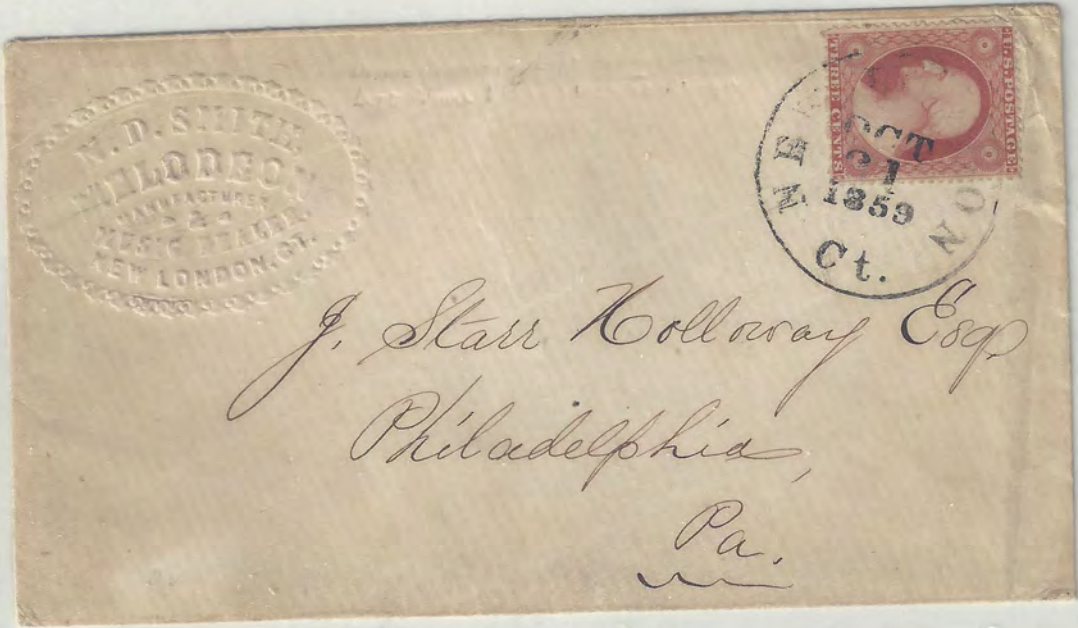 D. SMITH.
MELODEON
MANUFACTURER
&
MUSIC DEALER
NEW LONDON, CT.
U.S. POSTAGE
THREE CENTS
NEW
ON
OCT
21
1859
Ct.
J. Starr Holloway Esq.
Philadelphia,
Pa.